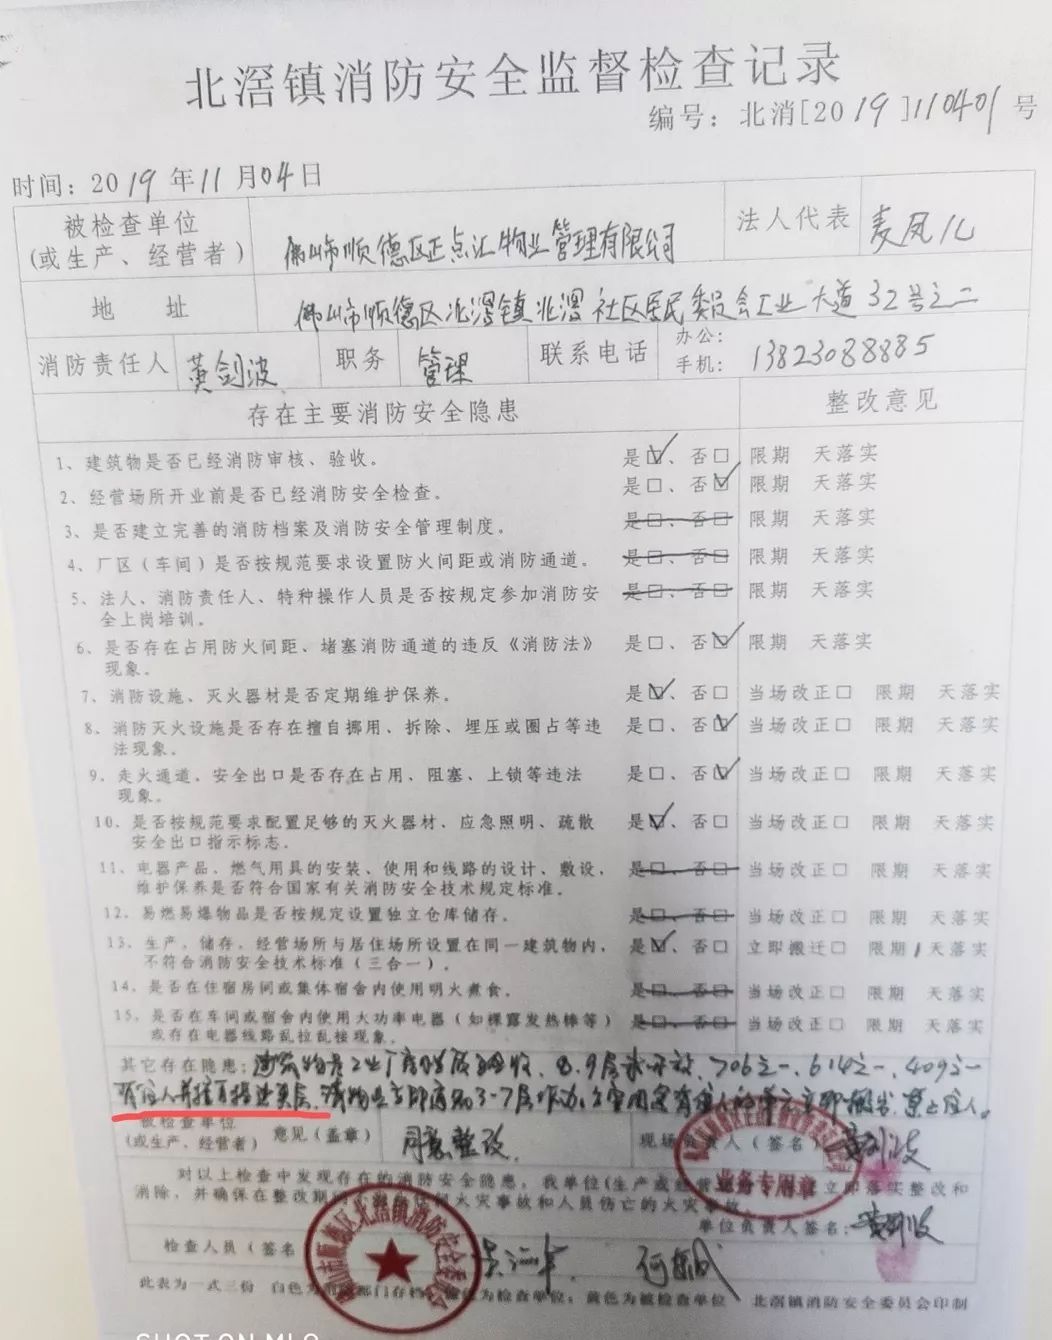 北滘镇消防安全监督检查记录
编号：北消[2019]110401号
时间：2019年11月04日
被检查单位
(或生产、经营者)
佛山市顺德区正点汇物业管理有限公司
法人代表
麦凤儿
地 址
佛山市顺德区北滘镇北滘社区居民委员会工业大道32号之二
消防责任人 黄剑波 职务 管理 联系电话 办公：
手机：13823088885
存在主要消防安全隐患 整改意见
1、建筑物是否已经消防审核、验收。 是☑、否□ 限期 天落实
2、经营场所开业前是否已经消防安全检查。 是□、否☑ 限期 天落实
3、是否建立完善的消防档案及消防安全管理制度。 是□、否□ 限期 天落实
4、厂区（车间）是否按规范要求设置防火间距或消防通道。 是□、否□ 限期 天落实
5、法人、消防责任人、特种操作人员是否按规定参加消防安 是□、否□ 限期 天落实
全上岗培训。
6、是否存在占用防火间距、堵塞消防通道的违反《消防法》 是□、否☑ 限期 天落实
现象。
7、消防设施、灭火器材是否定期维护保养。 是☑、否□ 当场改正□ 限期 天落实
8、消防灭火设施是否存在擅自挪用、拆除、埋压或圈占等违 是□、否☑ 当场改正□ 限期 天落实
法现象。
9、走火通道、安全出口是否存在占用、阻塞、上锁等违法 是□、否☑ 当场改正□ 限期 天落实
现象。
10、是否按规范要求配置足够的灭火器材、应急照明、疏散 是☑、否□ 当场改正□ 限期 天落实
安全出口指示标志。
11、电器产品、燃气用具的安装、使用和线路的设计、敷设、 是□、否□ 当场改正□ 限期 天落实
维护保养是否符合国家有关消防安全技术规定标准。
12、易燃易爆物品是否按规定设置独立仓库储存。 是□、否□ 当场改正□ 限期 天落实
13、生产、储存、经营场所与居住场所设置在同一建筑物内， 是☑、否□ 立即搬迁□ 限期1天落实
不符合消防安全技术标准（三合一）。
14、是否在住宿房间或集体宿舍内使用明火煮食。 是□、否□ 当场改正□ 限期 天落实
15、是否在车间或宿舍内使用大功率电器（如裸露发热棒等） 是□、否□ 当场改正□ 限期 天落实
或存在电器线路乱拉乱接现象。
其它存在隐患：建筑物是工业厂房 验收，8、9层未开放，706之一、614之一、409之一
有住人 3-7层 有住人的 立即搬出，禁止住人。
被检查单位
(或生产、经营者) 意见（盖章） 同意整改。 现场负责人（签名） 黄剑波
业务专用章
对以上检查中发现存在的消防安全隐患，我单位(生产或经营 立即落实整改和
消除，并确保在整改期 火灾事故和人员伤亡的火灾事故
单位负责人签名： 黄剑波
检查人员（签名
北滘镇消防安全委员会
此表为一式三份 白色为 部门存档 色为检查单位；黄色为被检查单位 北滘镇消防安全委员会印制
SHOT ON MI 9